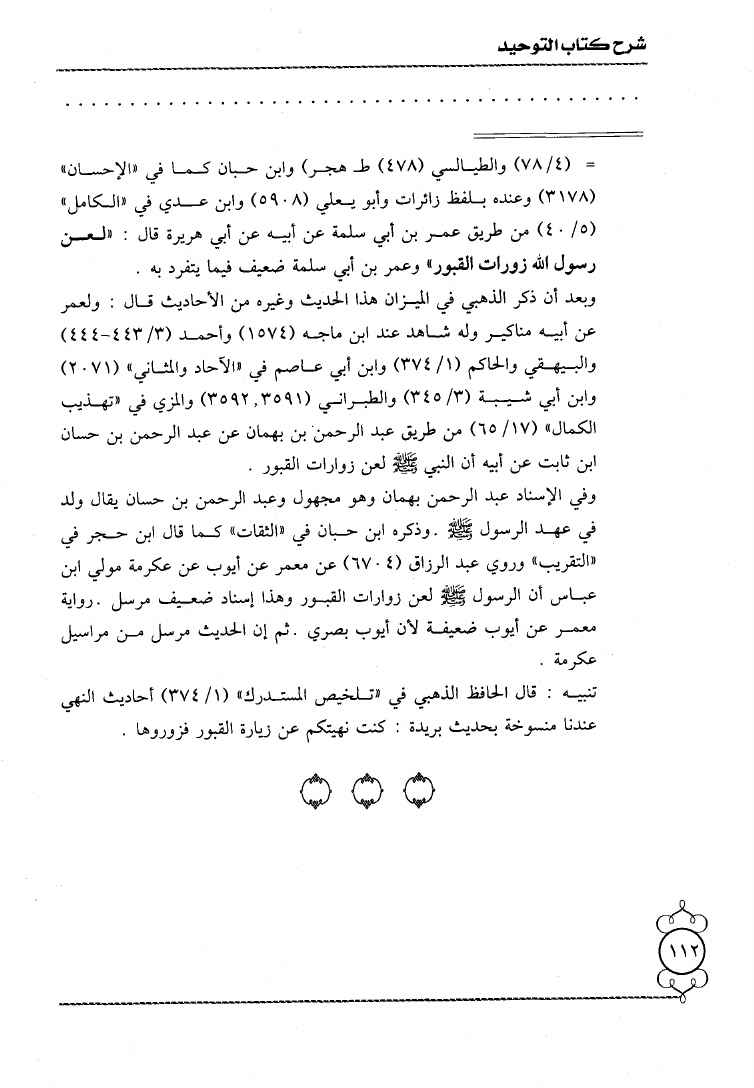 شرح كتاب التوحيد
. . . . . . . . . . . . . . . . . . . . . . . . . . . . . . . . . . . . . . . . . . . .
= (٧٨/٤) والطيالسي (٤٧٨) ط هجر) وابن حبان كما في «الإحسان»
(٣١٧٨) وعنده بلفظ زائرات وأبو يعلي (٥٩٠٨) وابن عدي في «الكامل»
(٥/ ٤٠) من طريق عمر بن أبي سلمة عن أبيه عن أبي هريرة قال : «لعن
رسول الله زورات القبور» وعمر بن أبي سلمة ضعيف فيما يتفرد به .
وبعد أن ذكر الذهبي في الميزان هذا الحديث وغيره من الأحاديث قال : ولعمر
عن أبيه مناكير وله شاهد عند ابن ماجه (١٥٧٤) وأحمد (٣/ ٤٤٣-٤٤٤)
والبيهقي والحاكم (١/ ٣٧٤) وابن أبي عاصم في «الآحاد والمثاني» (٢٠٧١)
وابن أبي شيبة (٣/ ٣٤٥) والطبراني (٣٥٩١, ٣٥٩٢) والمزي في «تهذيب
الكمال» (١٧/ ٦٥) من طريق عبد الرحمن بن بهمان عن عبد الرحمن بن حسان
ابن ثابت عن أبيه أن النبي ﷺ لعن زوارات القبور .
وفي الإسناد عبد الرحمن بهمان وهو مجهول وعبد الرحمن بن حسان يقال ولد
في عهد الرسول ﷺ .وذكره ابن حبان في «الثقات» كما قال ابن حجر في
«التقريب» وروي عبد الرزاق (٦٧٠٤) عن معمر عن أيوب عن عكرمة مولي ابن
عباس أن الرسول ﷺ لعن زوارات القبور وهذا إسناد ضعيف مرسل .رواية
معمر عن أيوب ضعيفة لأن أيوب بصري .ثم إن الحديث مرسل من مراسيل
عكرمة .
تنبيه : قال الحافظ الذهبي في «تلخيص المستدرك» (١/ ٣٧٤) أحاديث النهي
عندنا منسوخة بحديث بريدة : كنت نهيتكم عن زيارة القبور فزوروها .
١١٢